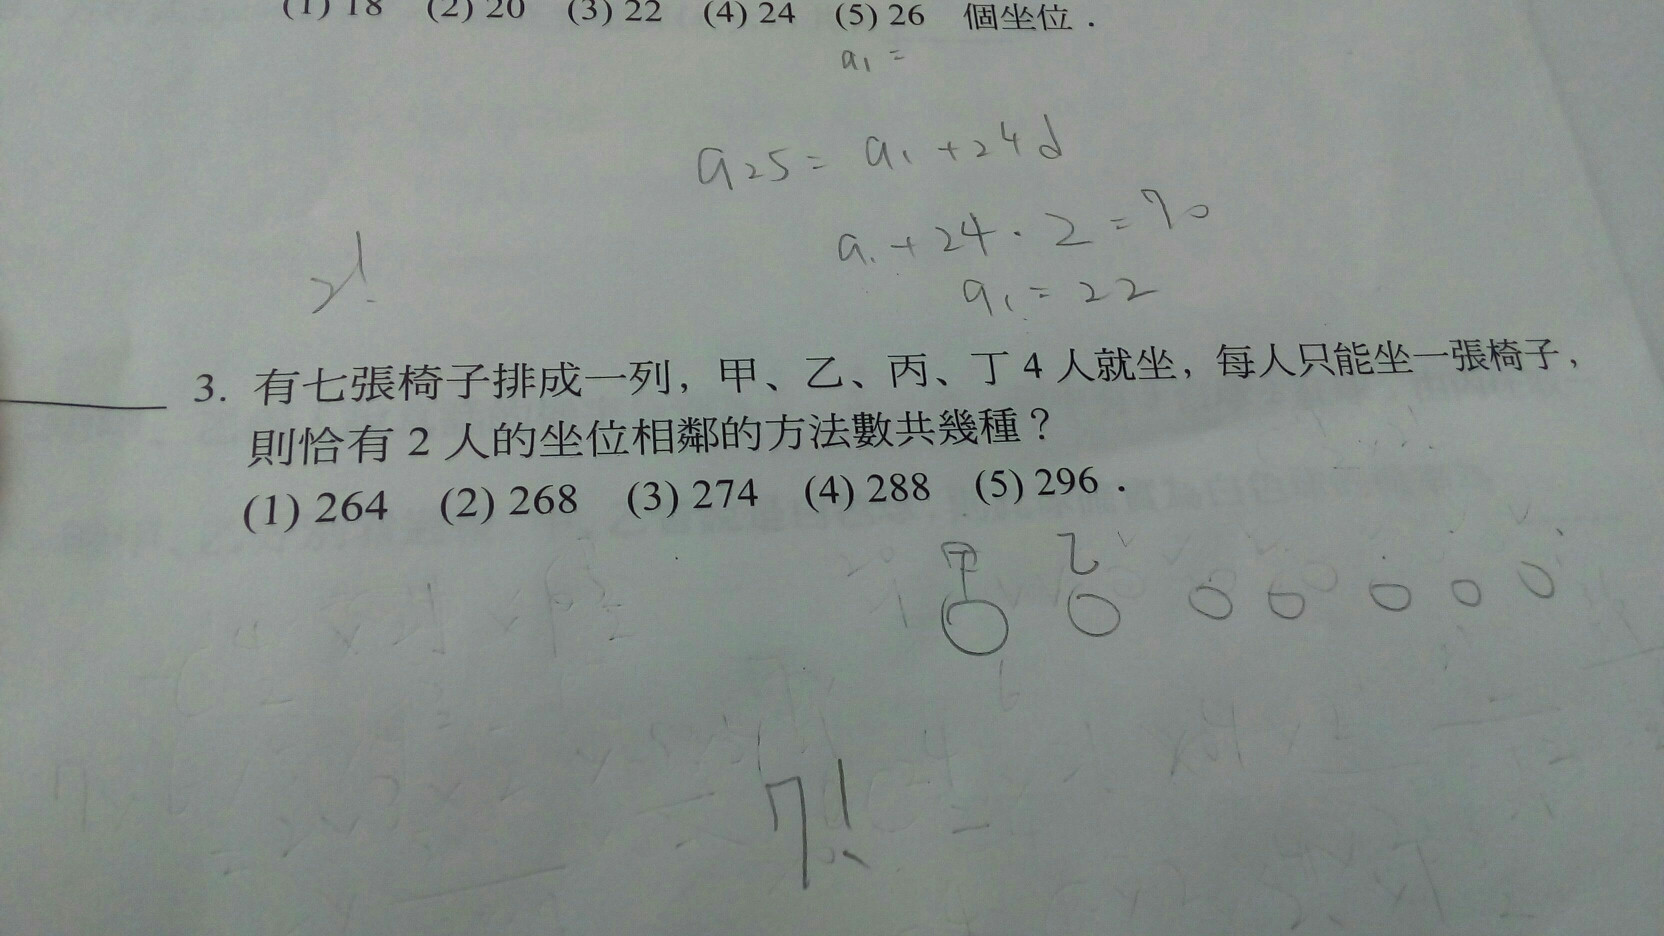 (1) 18 (2) 20 (3) 22 (4) 24 (5) 26 個坐位.
a₁ =
a₂₅ = a₁ + 24d
a₁ + 24 · 2 = 70
a₁ = 22
2!
3. 有七張椅子排成一列, 甲、乙、丙、丁 4 人就坐, 每人只能坐一張椅子,
則恰有 2 人的坐位相鄰的方法數共幾種?
(1) 264 (2) 268 (3) 274 (4) 288 (5) 296.
甲 乙
7!